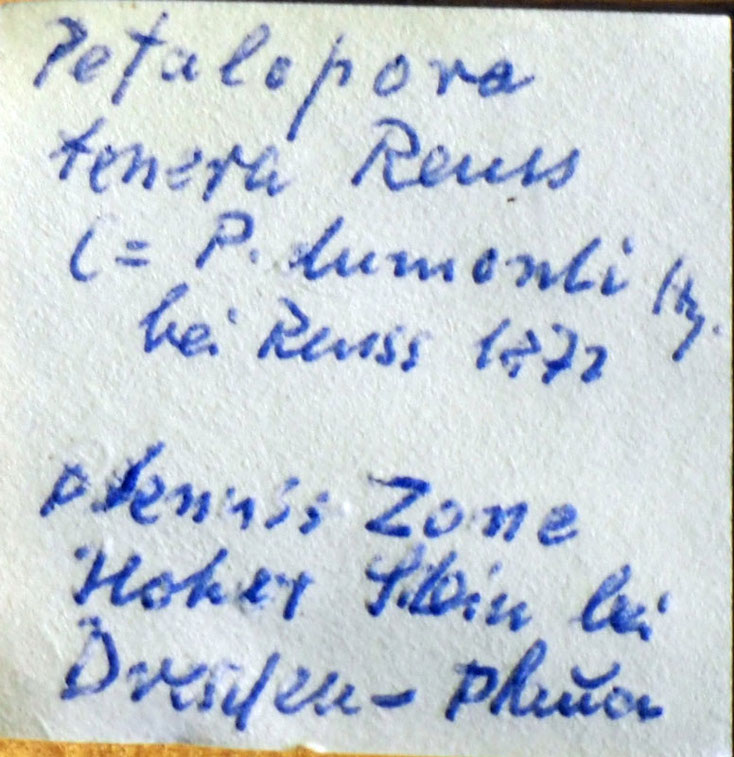 Petalopora
tenera Reuss
(= P. dumonti Hg.
bei Reuss 1872
plenus Zone
Hoher Stein bei
Dresden-Plauen